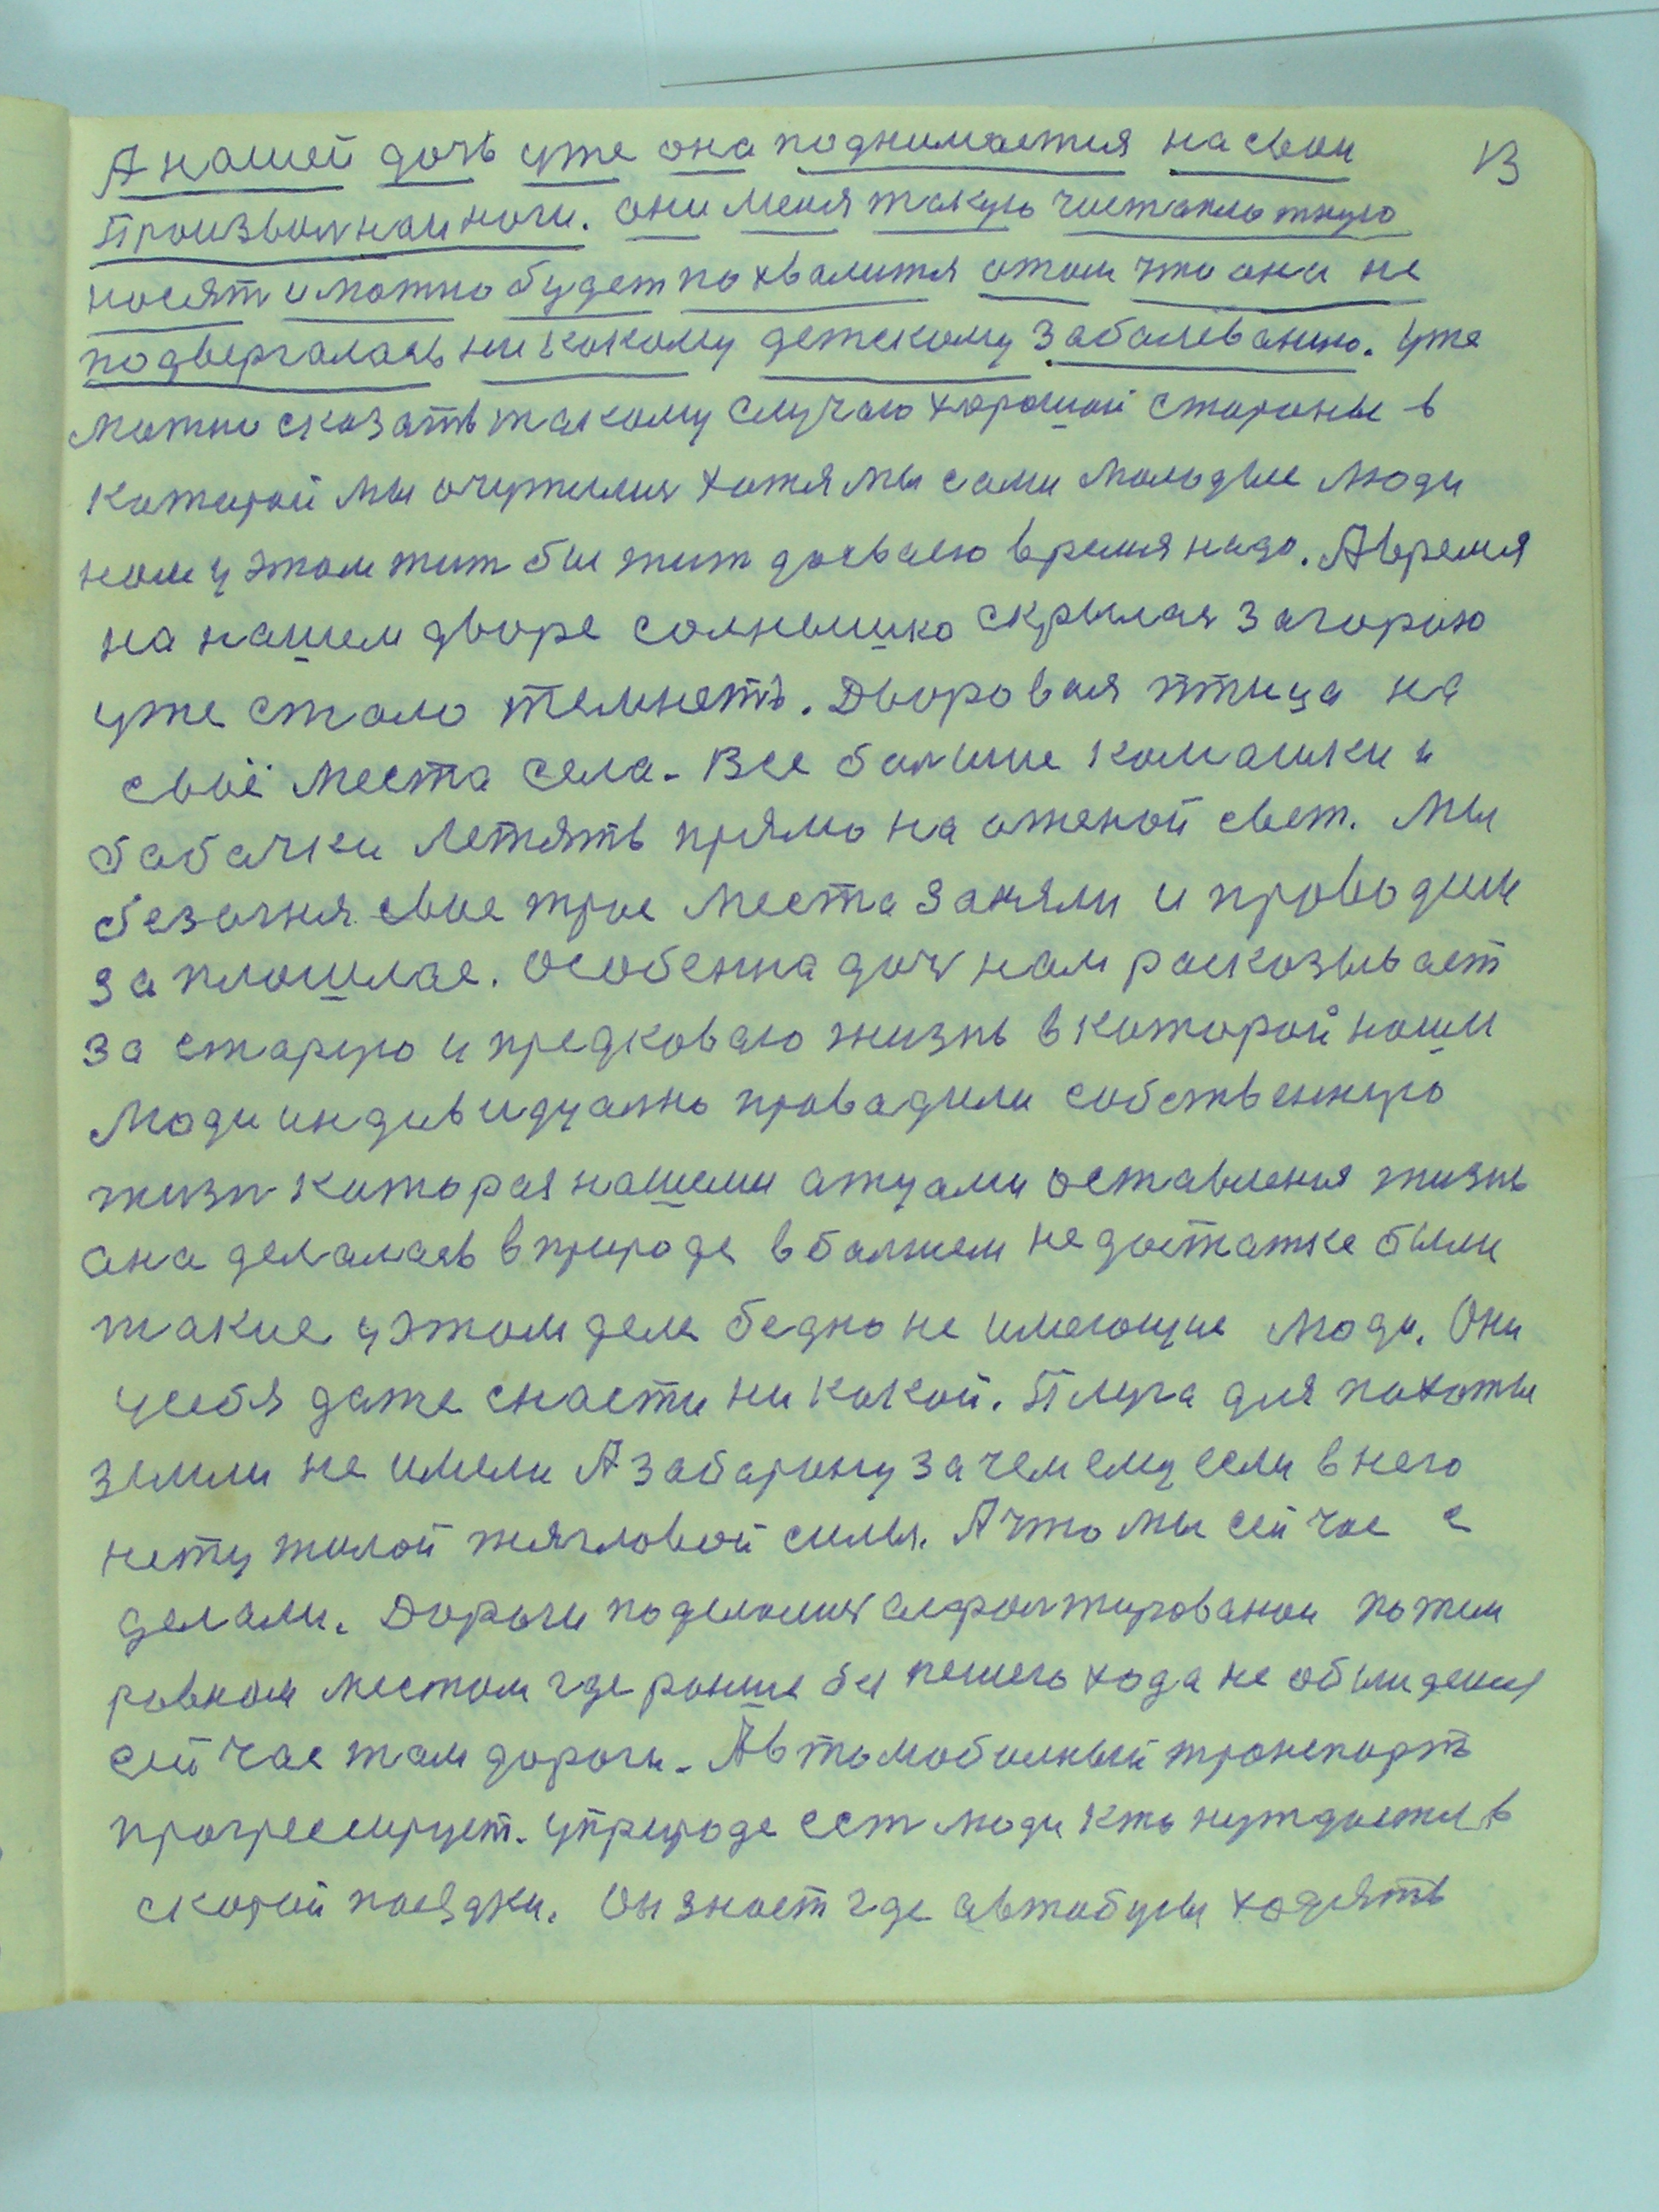 13
А нашей дочь уже она поднимается на свои
Произволнаи ноги. они меня такую чистаплотную
носят и можно будет похвалится отом что она не
подвергалась ни какому детскому заболеванию. Уже
можно сказать такому случаю хорошой стороны в
которой мы очутились хотя мы сами молодые люди
нам у этом жит бы жит досваею время надо. А время
на нашем дворе солнышко скрылась за горою
уже стало темнеть. Дворовая птица на
своё места села. Все болшие комашки и
бабачки летять прямо на оженой свет. Мы
безогня свое трое места заняли и проводим
за плошлае. Особенна доч нам расказывает
за старую и предковаю жизнь в которой наши
люди индивидуално провадили собственную
жизн которая нашеми атцами оставления жизнь
она делалась вприроде вболшем недостатке были
такие уэтом деле бедно не имеющие люди. Они
усебя даже снасти ни какой. Плуга для пахоты
земли не имели А заборону зачем ему если внего
нету жилой тягловой силы. А что мы сейчас с
делали. Дорыги поделались асфолтированои по тем
ровном местом где раньше бы пешего хода не
сейчас там дороги. Автомобилный транспорть
прогрессирует. уприроде ест люди кто нуждается в
скорой поездки. Он знает где автобусы ходять